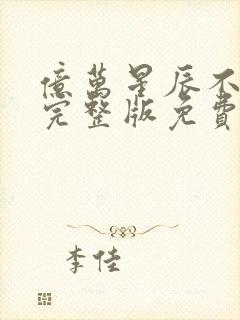 億萬星辰不
完整版免費
李佳